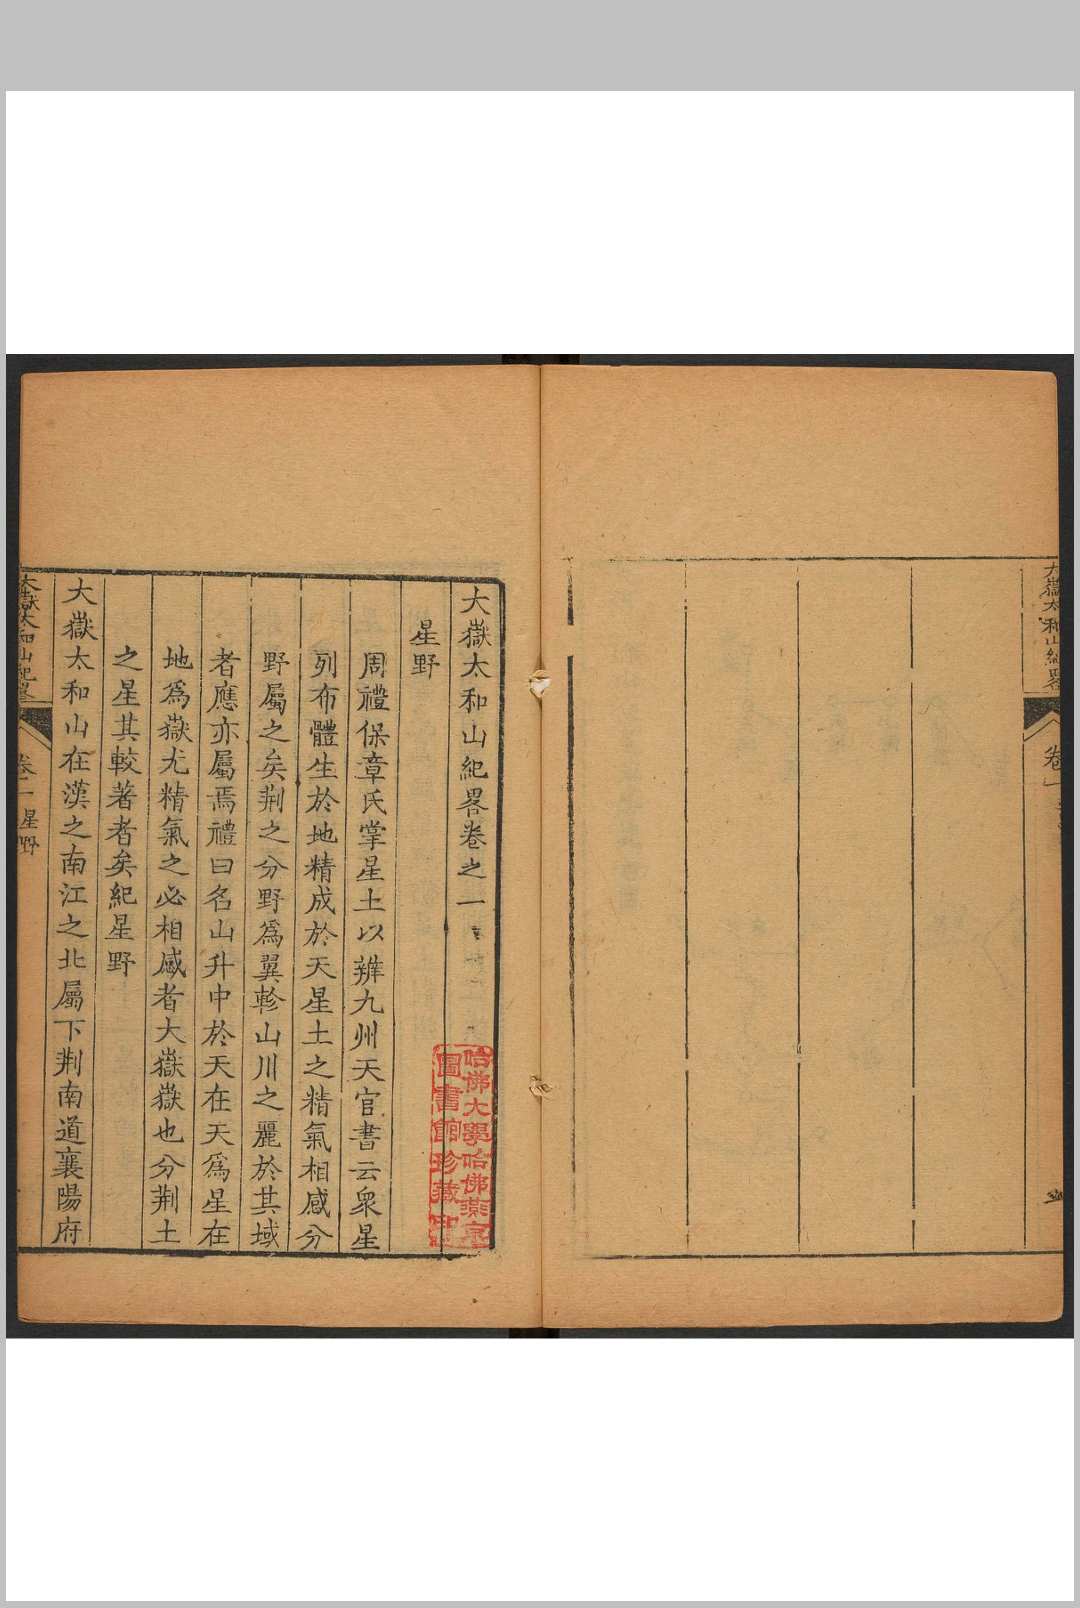 大嶽太和山紀畧
卷一
大嶽太和山紀畧卷之一
星野
周禮保章氏掌星土以辨九州天官書云衆星
列布體生於地精成於天星土之精氣相感分
野屬之矣荆之分野爲翼軫山川之麗於其域
者應亦屬焉禮曰名山升中於天在天爲星在
地爲嶽尤精氣之必相感者大嶽嶽也分荆土
之星其較著者矣紀星野
大嶽太和山在漢之南江之北屬下荆南道襄陽府
大嶽太和山紀畧
星野
哈佛大學哈佛燕京
圖書館珍藏印